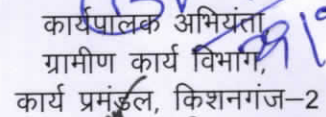 कार्यपालक अभियंता
ग्रामीण कार्य विभाग,
कार्य प्रमंडल, किशनगंज–2